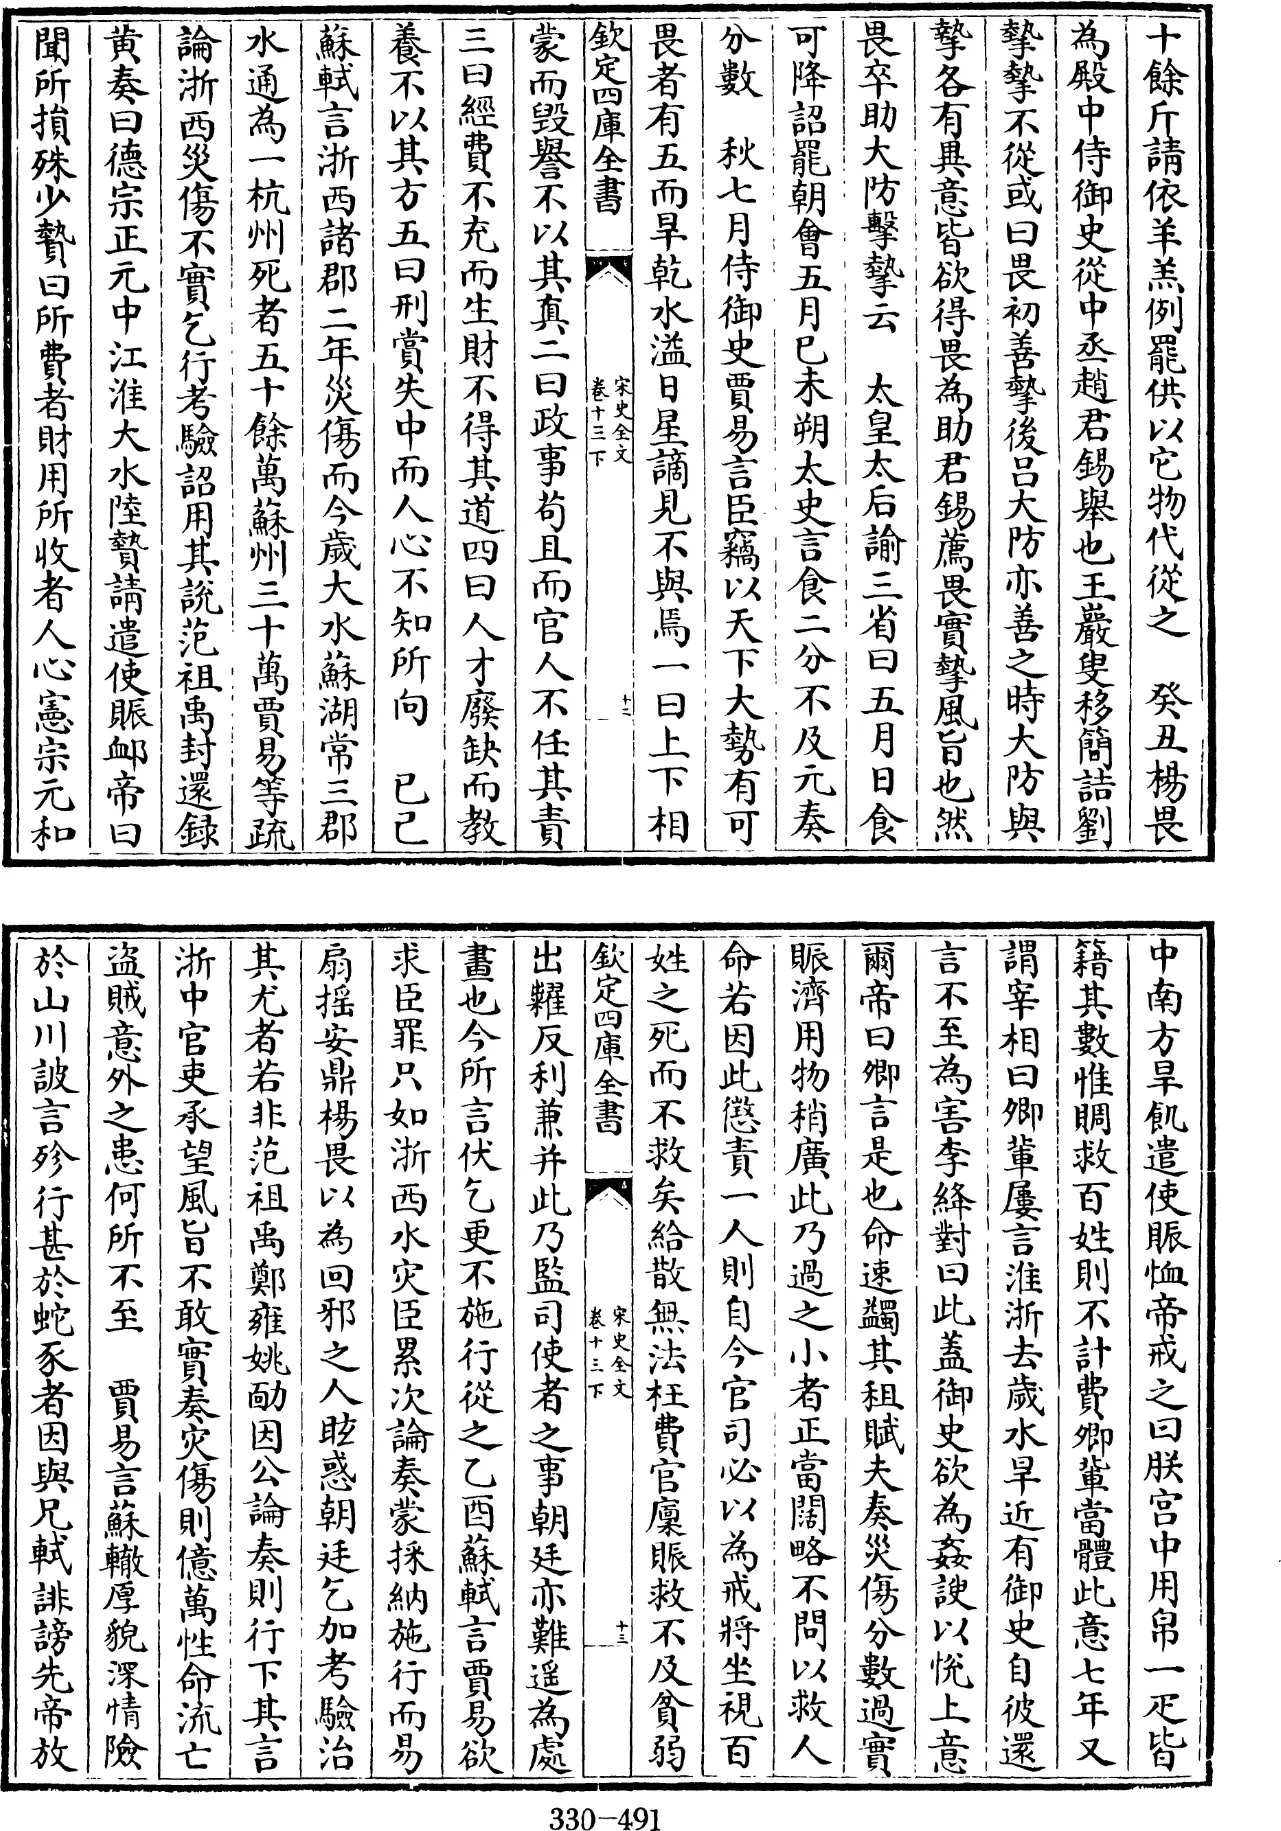 十餘斤請依羊羔例罷供以它物代從之　癸丑楊畏
為殿中侍御史從中丞趙君錫舉也王巖叟移簡詰劉
摯摯不從或曰畏初善摯後吕大防亦善之時大防與
摯各有異意皆欲得畏為助君錫薦畏實摯風旨也然
畏卒助大防擊摯云　太皇太后諭三省曰五月日食
可降詔罷朝會五月已未朔太史言食二分不及元奏
分數　秋七月侍御史賈易言臣竊以天下大勢有可
畏者有五而旱乾水溢日星謫見不與焉一曰上下相
欽定四庫全書
宋史全文
卷十三下
十二
蒙而毀譽不以其真二曰政事苟且而官人不任其責
三曰經費不充而生財不得其道四曰人才廢缺而教
養不以其方五曰刑賞失中而人心不知所向　已己
蘇軾言浙西諸郡二年災傷而今歲大水蘇湖常三郡
水通為一杭州死者五十餘萬蘇州三十萬賈易等疏
論浙西災傷不實乞行考驗詔用其說范祖禹封還録
黄奏曰德宗正元中江淮大水陸贄請遣使賑卹帝曰
聞所損殊少贄曰所費者財用所收者人心憲宗元和
中南方旱飢遣使賑恤帝戒之曰朕宫中用帛一疋皆
籍其數惟賙救百姓則不計費卿輩當體此意七年又
謂宰相曰卿輩屢言淮浙去歲水旱近有御史自彼還
言不至為害李絳對曰此蓋御史欲為姦諛以悅上意
爾帝曰卿言是也命速蠲其租賦夫奏災傷分數過實
賑濟用物稍廣此乃過之小者正當闊略不問以救人
命若因此懲責一人則自今官司必以為戒將坐視百
姓之死而不救矣給散無法枉費官廩賑救不及貧弱
欽定四庫全書
宋史全文
卷十三下
十三
出糶反利兼并此乃監司使者之事朝廷亦難遥為處
畫也今所言伏乞更不施行從之乙酉蘇軾言賈易欲
求臣罪只如浙西水灾臣累次論奏蒙採納施行而易
扇摇安鼎楊畏以為回邪之人眩惑朝廷乞加考驗治
其尤者若非范祖禹鄭雍姚勔因公論奏則行下其言
浙中官吏承望風旨不敢實奏灾傷則億萬性命流亡
盗賊意外之患何所不至　賈易言蘇轍厚貌深情險
於山川詖言殄行甚於蛇豕者因與兄軾誹謗先帝放
330-491